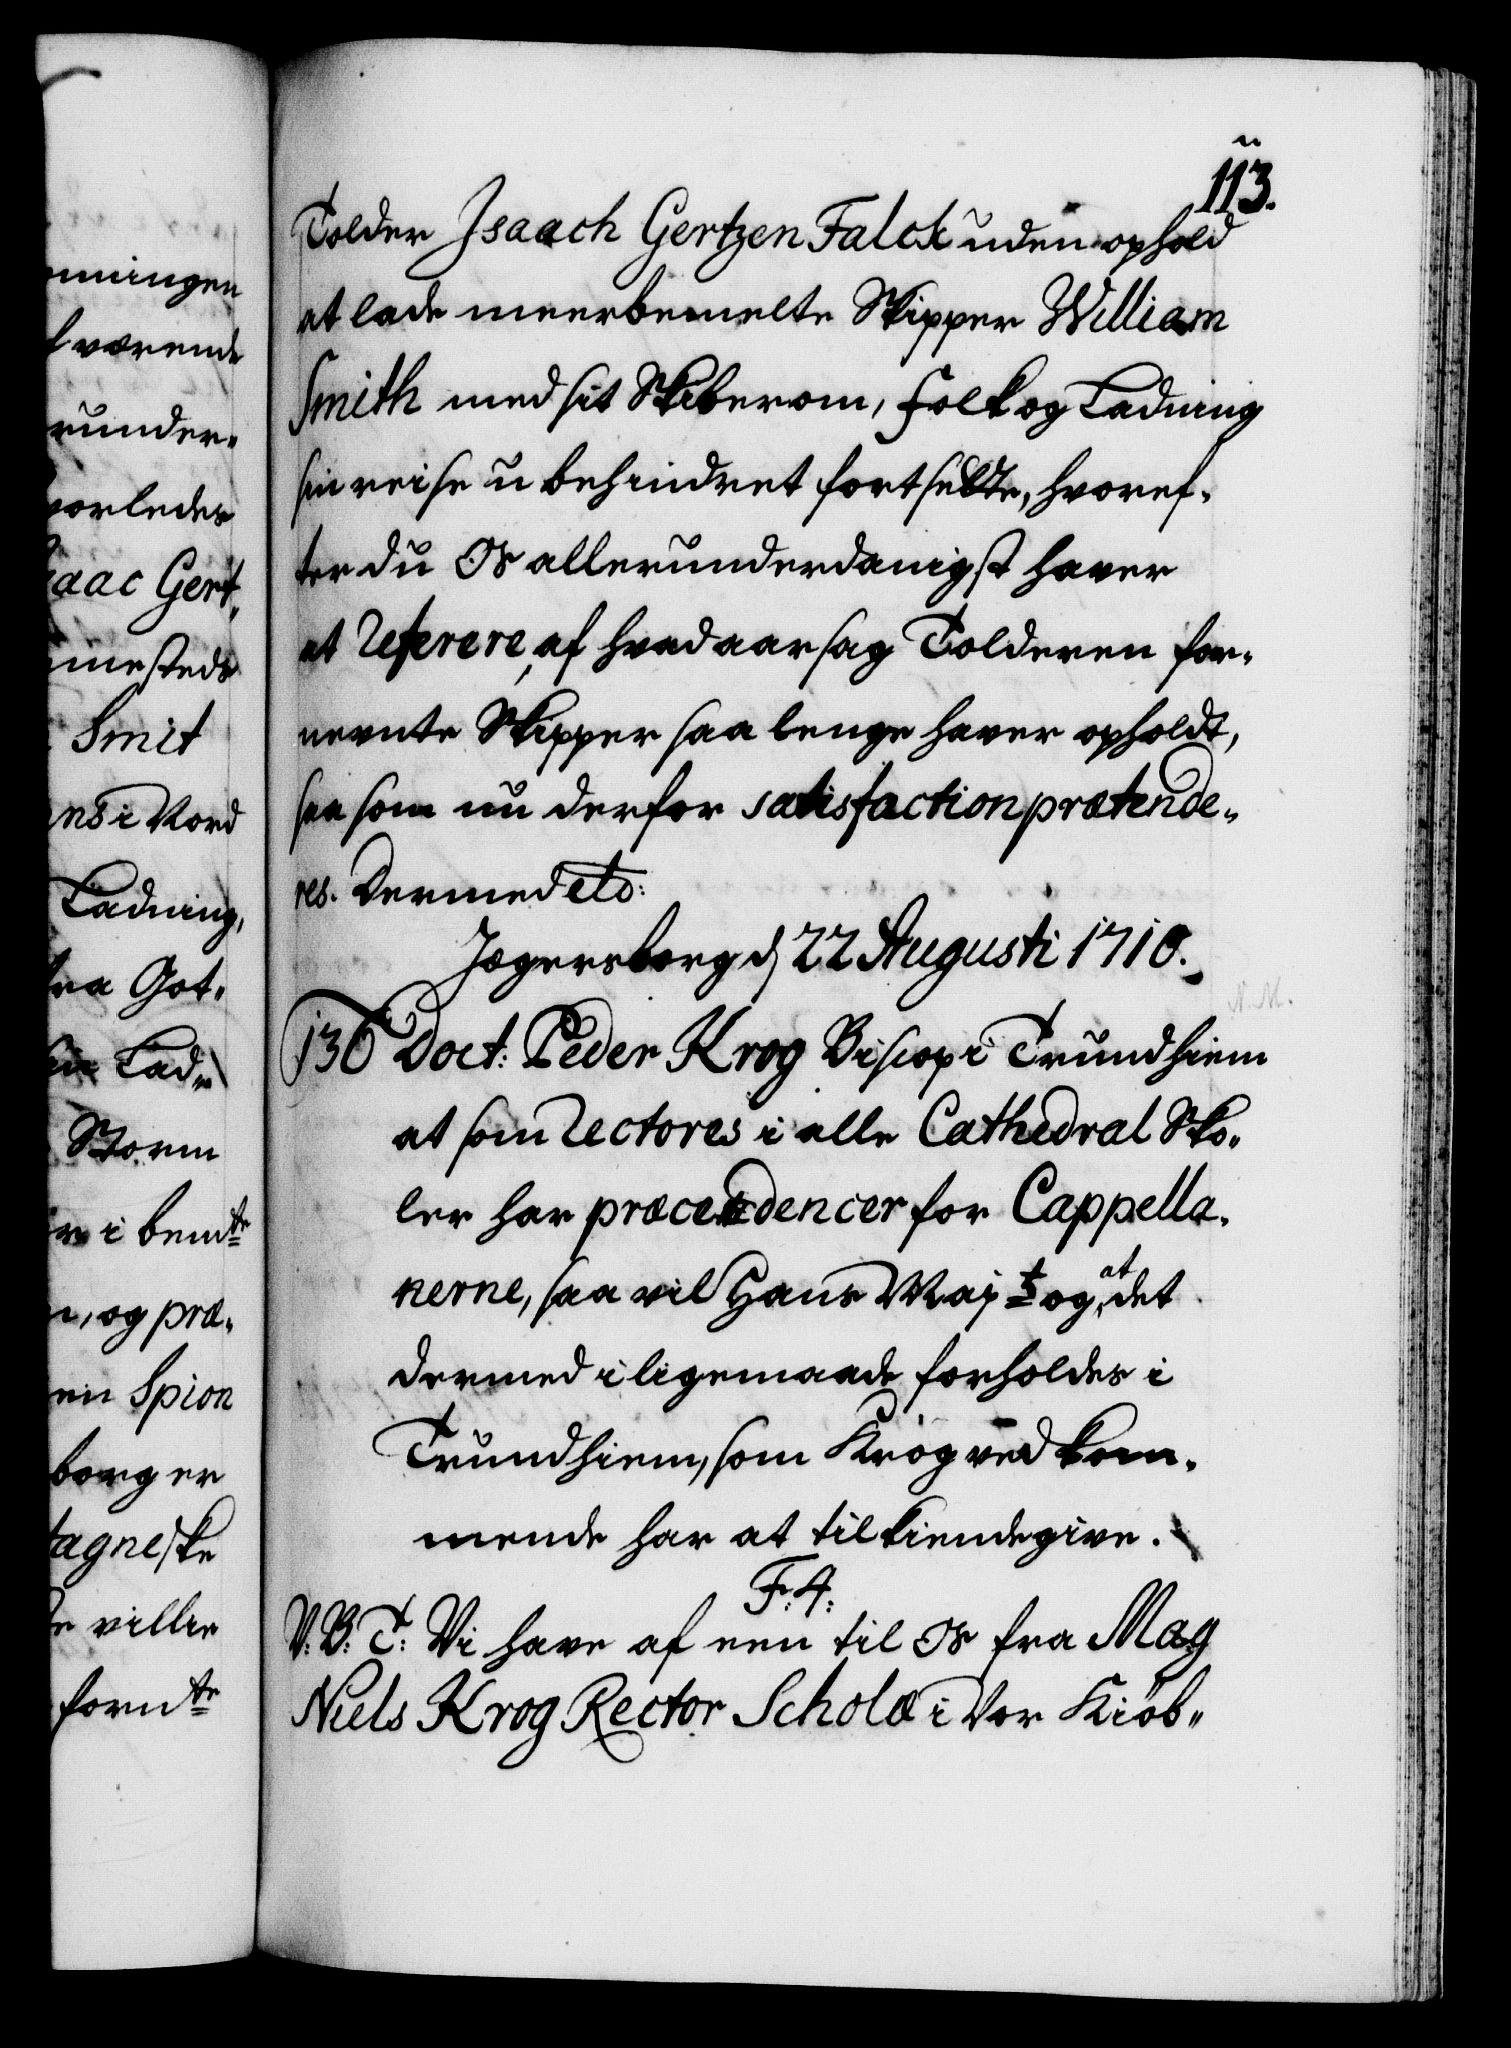 113.
Tolder Isaach Gertzen Falck uden ophold
at lade meerbemelte Skipper William
Smith med sit Skiberom, folk og Ladning
sin reise ubehindret fortsette, hvoref-
ter du Os allerunderdanigst haver
at referere, af hvad aarsag Tolderen for-
nevnte Skipper saa lenge haver opholdt,
saa som nu derfor satisfaction prætende-
res. Dermed etc:
Jægersborg d 22 Augusti 1710.
N.M.
136 Doct: Peder Krog Biscop i Trundhiem
at som Rectores i alle Cathedral Sko-
ler har præcedencer for Cappella-
nerne, saa vil Hans Maj.t og, at det
dermed i ligemaade forholdes i
Trundhiem, som Krog vedkom-
mende har at tilkiendegive.
F: 4:
V: B: T: Vi have af een til Os fra Mag
Niels Krog Rector Scholæ i Vor Kiøb-
mingen
værende
runder-
vorledes
saac Gert,
mesteds
Smit
ns i Nord
Ladning,
fra Got-
Lad-
Storm
i bemte
, og præ-
en Spion
borg er
tagneske
ville
fornte